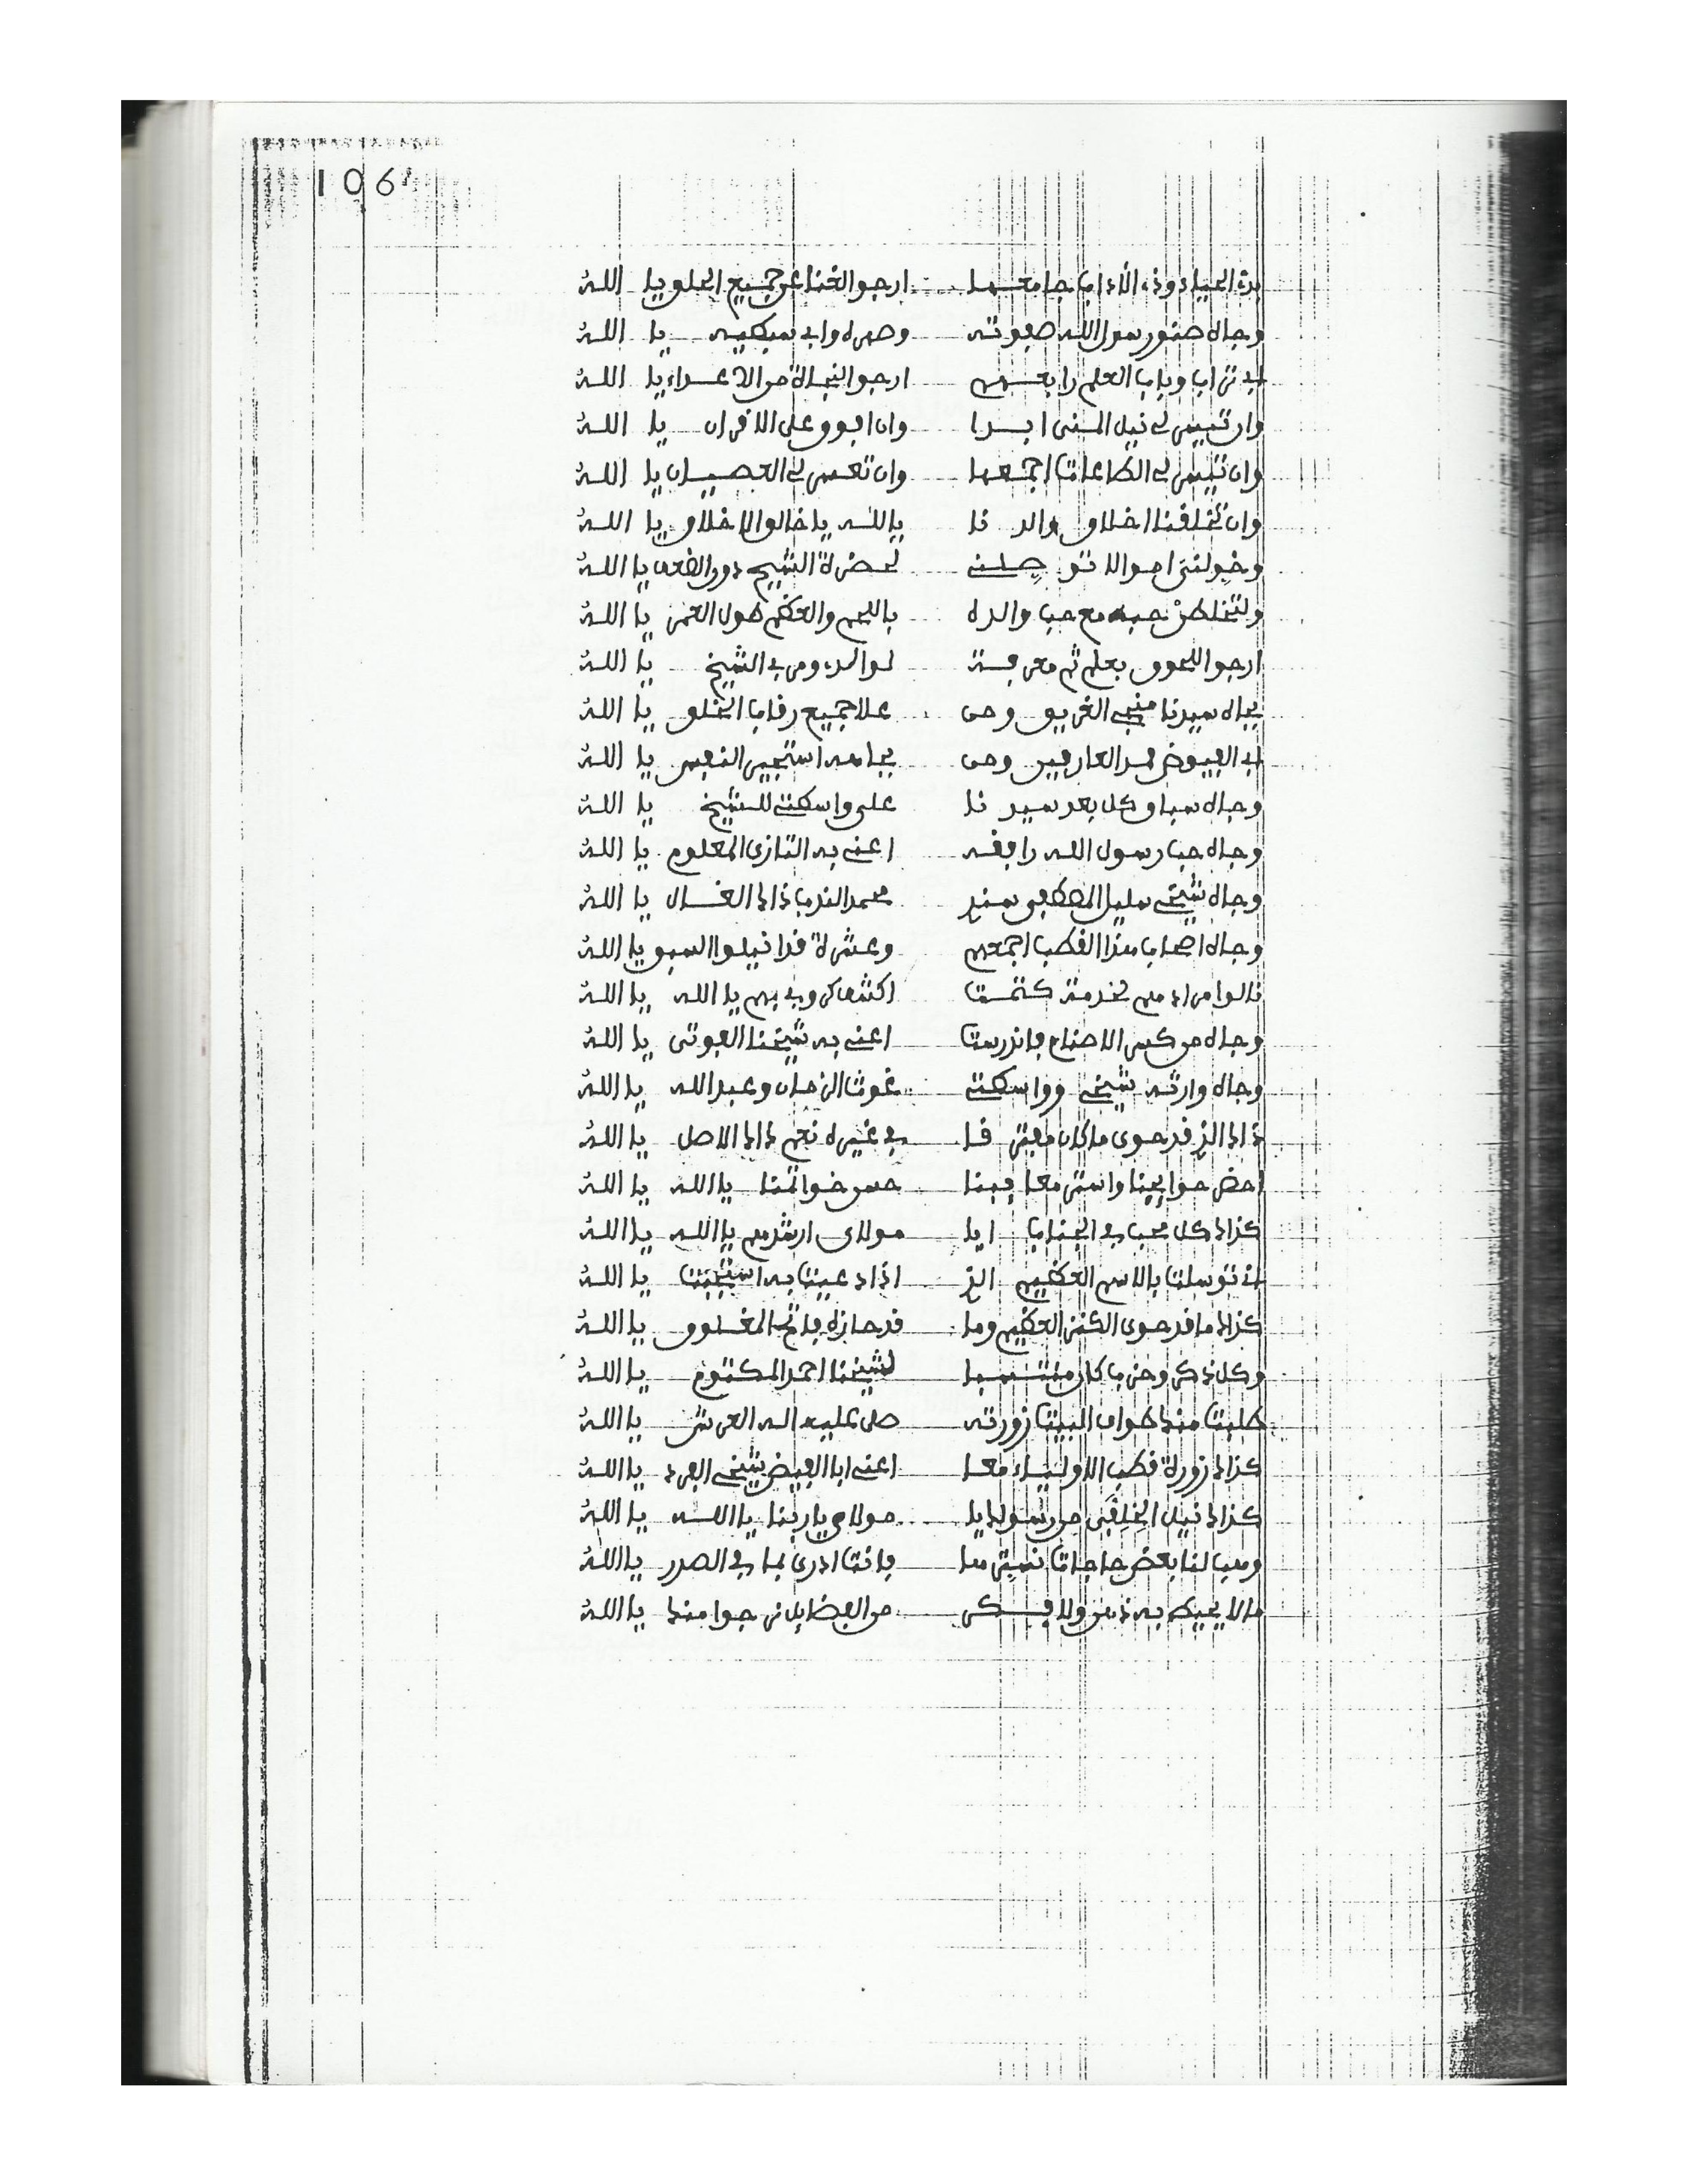 106
الحيا وذى الآداب جامعها ارجو الغنا عن جميع الخلق يا الله
وجاه صنو رسول الله صفوته وصهره وابي سبطيه يا الله
ابي تراب وباب العلم رابعهم ارجو النجاة من الاعداء يا الله
وان تيسر لي نيل المنى ابدا وان افوق على الاقران يا الله
وان تيسر لي الطاعات اجمعها وان تعسر لي العصيان يا الله
وان تخلقنا اخلاق والدنا يا الله يا خالق الاخلاق يا الله
وخولنى اموالا توصلنے لحضرة الشيخ دون الضعف يا الله
ولتخلطن حبه مع حب والده باللحم والعظم طول العمر يا الله
ارجو اللحوق بعلم ثم معرفة لوالد ومربي الشيخ يا الله
بجاه سيدنا منجى الغريق ومن علا جميع رقاب الخلق يا الله
ابي الفيوض ممد العارفين ومن بجاهه استجير النفس يا الله
وجاه سباق كل بعد سيدنا على واسطتے للشيخ يا الله
وجاه حب رسول الله رافقه اعنے به التازى المعلوم يا الله
وجاه شيخے سليل المصطفى سندى محمد الندب ذاك الغال يا الله
وجاه اصحاب هذا القطب اجمعهم وعشرة قد انيلوا السبق يا الله
نالوا مرادهم لخدمة كتمت اكشف كروبي بهم يا الله يا الله
وجاه من كسر الاصنام فاندرست اعنے به شيخنا الفوتى يا الله
وجاه وارثه شيخے وواسطتے غوث الزمان وعبد الله يا الله
ذاك الذى قد حوى ما كان مفترقا في غيره نعم ذاك الاصل يا الله
اقض حوايجنا واستر معايبنا حسن خواتمنا يا الله يا الله
كذاك كل محب في الجناب ايا مولاى ارشدهم يا الله يا الله
انے توسلت بالاسم العظيم الذى اذا دعيت به استجبت يا الله
كذاك ما قد حوى الكنز العظيم وما قد حازه فاتح المغلوق يا الله
وكل ذكر وحزب كان منتسبا لشيخنا احمد المكتوم يا الله
طلبت منك طواف البيت زورته صلى عليه اله العرش يا الله
كذاك زورة قطب الاولياء معا اعنے ابا الفيض شيخے الفرد يا الله
كذاك نيل الخلقى من رسولك يا مولاى يا ربنا يا الله يا الله
وهب لنا بعض حاجات نسيت معا فانت ادرى بما في الصدر يا الله
مالا يحيط به ذهن ولا فكر من الفضايل نرجوا منك يا الله